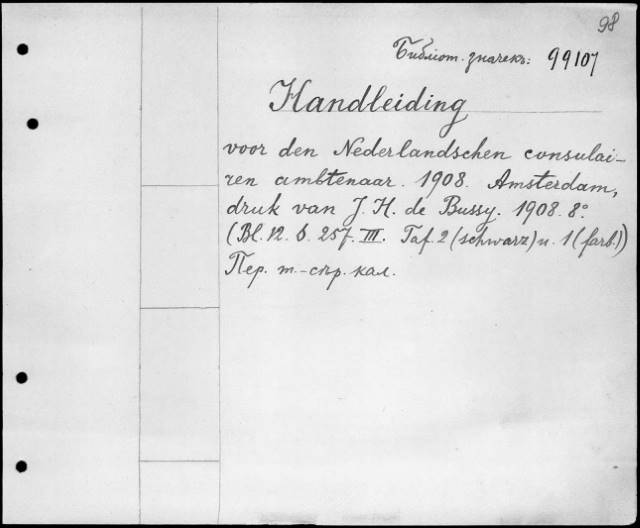 98
Библіот. значекъ: 99107
Handleiding
voor den Nederlandschen consulai-
ren ambtenaar. 1908. Amsterdam,
druk van J. H. de Bussy. 1908. 8°.
(Bl. 12. S. 257. III. Taf. 2 (schwarz) u. 1 (farb.))
Пер. т.-сѣр. кал.